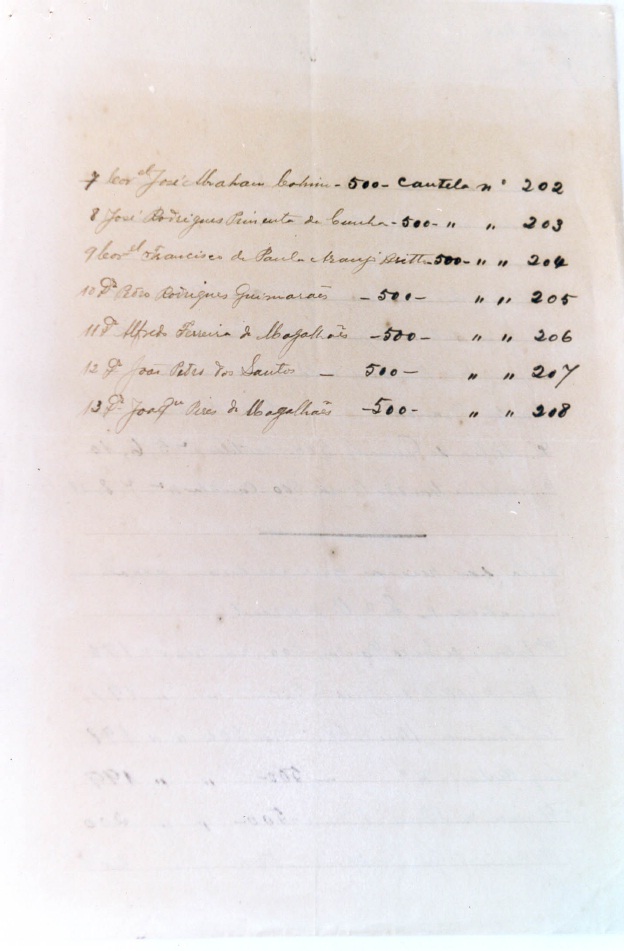 7 Cor.el José Abraham Cohim - 500 - Cautela nº 202
8 José Rodrigues Pimenta da Cunha - 500 - " " 203
9 Cor.el Francisco de Paula Araujo Britto 500 - " " 204
10 Dr. Rodrigues Guimarães - 500 - " " 205
11 Dr. Alfredo Ferreira de Magalhães - 500 - " " 206
12 Dr. João Pedro dos Santos - 500 - " " 207
13 Dr. Joaqm Pires de Magalhães - 500 - " " 208